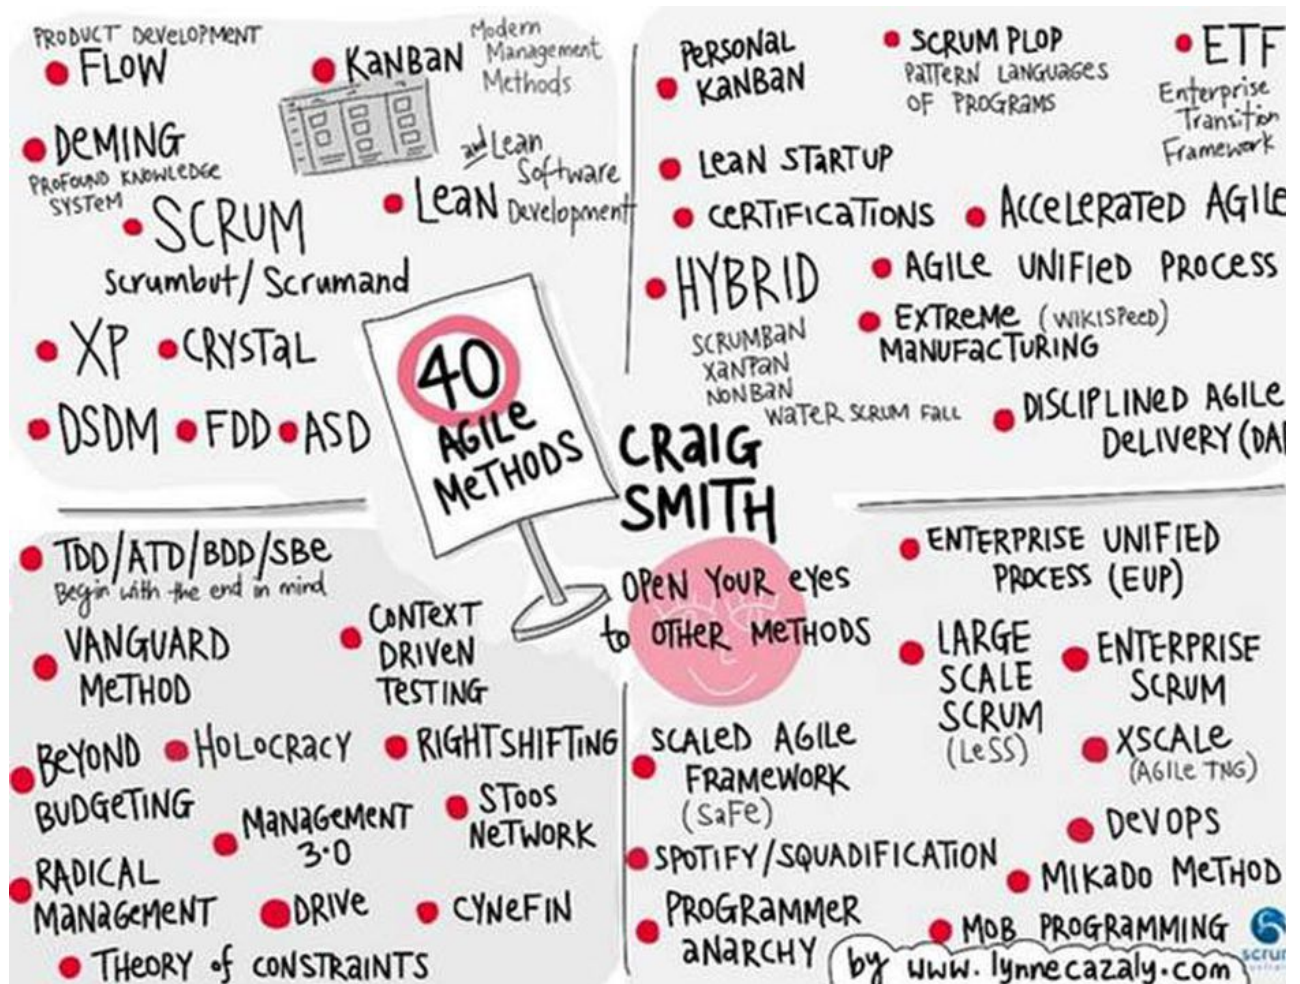 PRODUCT DEVELOPMENT
FLOW
KANBAN
Modern
Management
Methods
DEMING
PROFOUND KNOWLEDGE
SYSTEM
and Lean
Software
LEAN Development
SCRUM
Scrumbut/Scrumand
XP
CRYSTAL
DSDM
FDD
ASD
PERSONAL
KANBAN
SCRUM PLOP
PATTERN LANGUAGES
OF PROGRAMS
ETF
Enterprise
Transition
Framework
LEAN STARTUP
CERTIFICATIONS
ACCELERATED AGILE
HYBRID
SCRUMBAN
XANPAN
NONBAN
WATER SCRUM FALL
AGILE UNIFIED PROCESS
EXTREME (WIKISPEED)
MANUFACTURING
DISCIPLINED AGILE
DELIVERY (DA
40
AGILE
METHODS
CRAIG
SMITH
OPEN YOUR EYES
to OTHER METHODS
TDD/ATD/BDD/SBE
Begin with the end in mind
VANGUARD
METHOD
CONTEXT
DRIVEN
TESTING
BEYOND
BUDGETING
HOLOCRACY
RIGHTSHIFTING
MANAGEMENT
3.0
STOOS
NETWORK
RADICAL
MANAGEMENT
DRIVE
CYNEFIN
THEORY of CONSTRAINTS
ENTERPRISE UNIFIED
PROCESS (EUP)
LARGE
SCALE
SCRUM
(LeSS)
ENTERPRISE
SCRUM
SCALED AGILE
FRAMEWORK
(SaFe)
XSCALE
(AGILE TNG)
DEVOPS
SPOTIFY/SQUADIFICATION
MIKADO METHOD
PROGRAMMER
ANARCHY
MOB PROGRAMMING
by www.lynnecazaly.com
scru